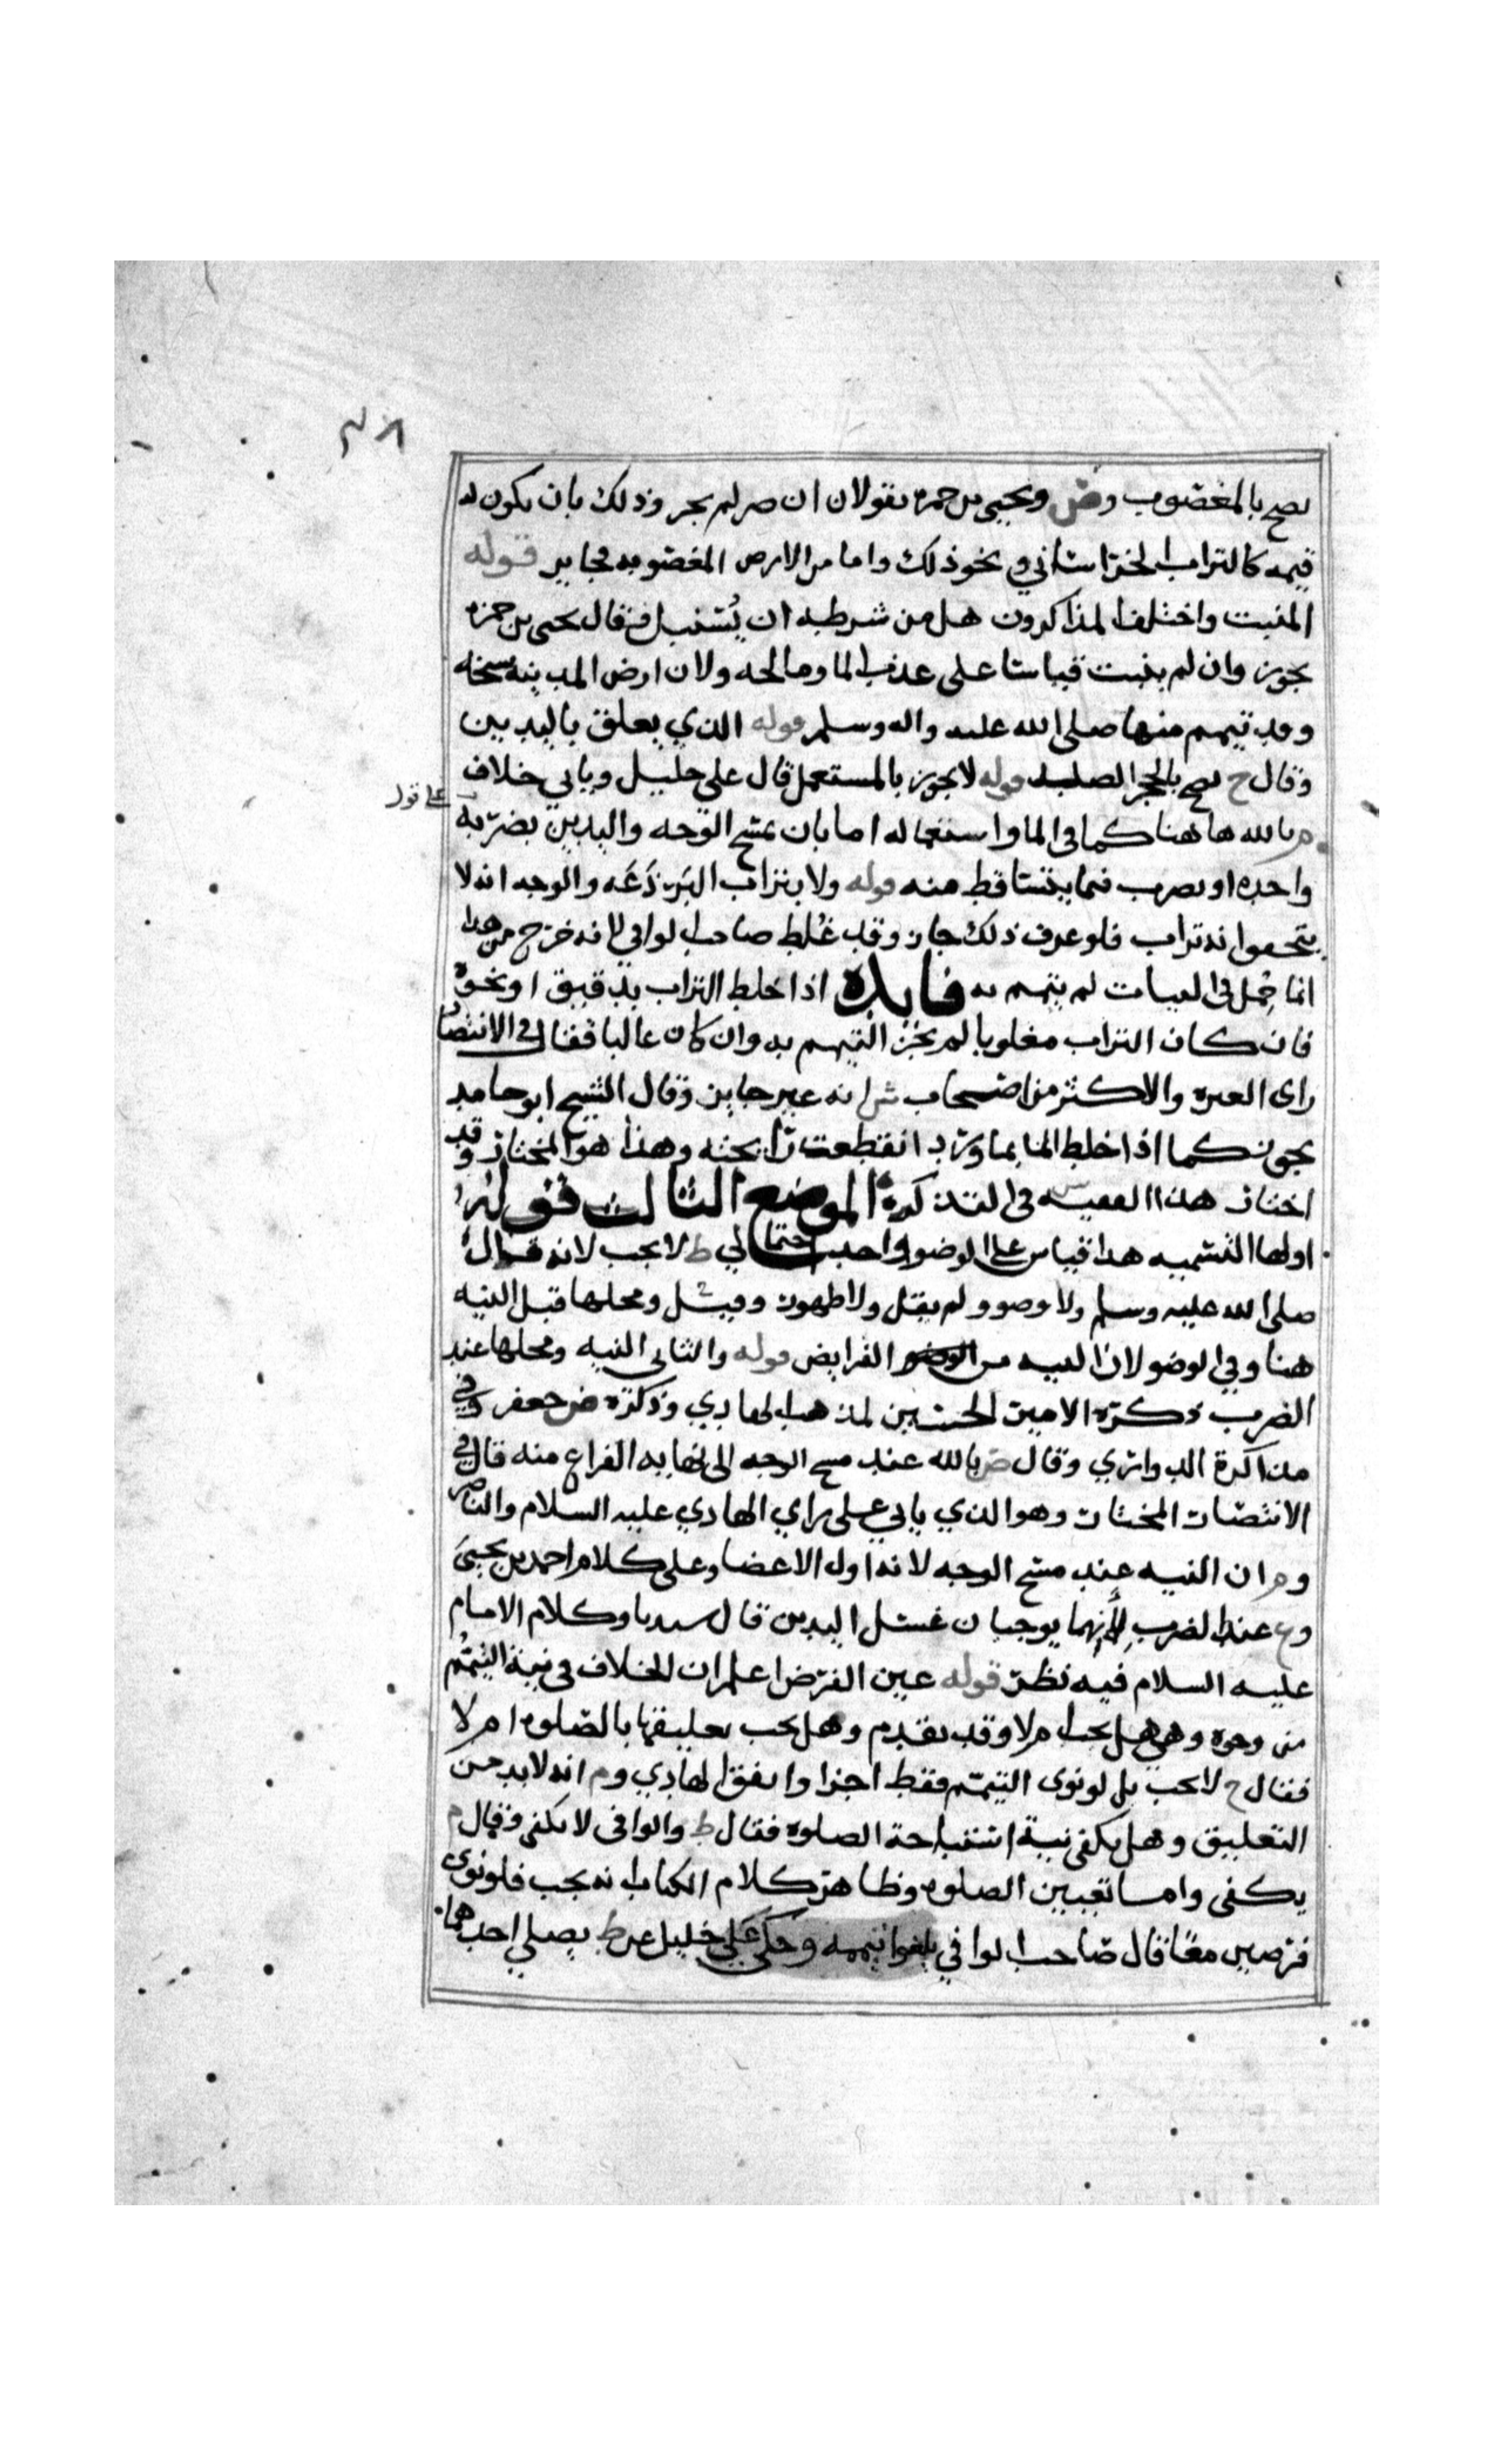 ٣٨
يصح بالمغصوب وض ويحيى بن حمزه يقولان ان ضر لم يجز وذلك بان يكون له
قيمه كالتراب الخراساني ونحو ذلك واما من الارض المغصوبه فجايز قوله
المنبت واختلف المذاكرون هل من شرطه ان يُنبت فقال يحيى بن حمزه
يجوز وان لم ينبت قياسا على عذب الما ومالحه ولان ارض المدينه سبخه
وقد تيمم منها صلى الله عليه واله وسلم قوله الذي يعلق باليدين
وقال ح يصح بالحجر الصلب قوله لا يجوز بالمستعمل قال علي خليل وياتي خلاف
على قول
م بالله هاهنا كما في الما واستعماله اما بان يمسح الوجه واليدين بضربه
واحده او يضرب فيما يتساقط منه قوله ولا بتراب البَرذَعَه والوجه انه لا
يتحقق انه تراب فلو عرف ذلك جاز وقد غُلط صاحب الوافي لانه خرج من هذا
اذا خلط التراب بدقيق او نحوه فايده لم يتيمم به
فان كان التراب مغلوبا لم يجز التيمم به وان كان غالبا فقال في الانتصار
راى العتره والاكثر من اصحاب ش انه غير جايز وقال الشيخ ابو حامد
يجوز كما اذا خلط الما بماورد انقطعت رائحته وهذا هو المختار وقد
اختار هذا الفقيه س في التذكره الموضع الثالث قوله
اولها التسميه هذا قياس على الوضو واحد احتمالي ط لا يجب لانه قال
صلى الله عليه وسلم ولا وضو ولم يقل ولا طهور وقيل ومحلها قبل النيه
هنا وفي الوضو لان النيه من الفرايض قوله والثاني النيه ومحلها عند
الضرب ذكره الامير الحسين لمذهب الهادي وذكره ض جعفر وفي
مذاكرة الدواري وقال ض بالله عند مسح الوجه الى نهايه الفراغ منه قال في
الانتصار المختار وهو الذي ياتي على راي الهادي عليه السلام والناصر
وم ان النيه عند مسح الوجه لانه اول الاعضا وعلى كلام احمد بن يحيى
وع عند الضرب لأنهما يوجبان غسل اليدين قال سيدنا وكلام الامام
عليه السلام فيه نظر قوله عين الفرض اعلم ان الخلاف في نية التيمم
من وجوه وهي هل يجب ام لا وقد تقدم وهل يجب تعليقها بالصلوه ام لا
فقال ح لا يجب بل لو نوى التيمم فقط اجزا واتفق الهادي وم انه لا بد من
التعليق وهل يكفي نية استباحة الصلوه فقال ط والوافي لا يكفي وقال م
يكفى واما تعيين الصلوه وظاهر كلام الكتاب انه يجب فلو نوى
فرضين معًا قال صاحب الوافي يلغوا تيممه وحكى علي خليل عن ط يصلي احدهما